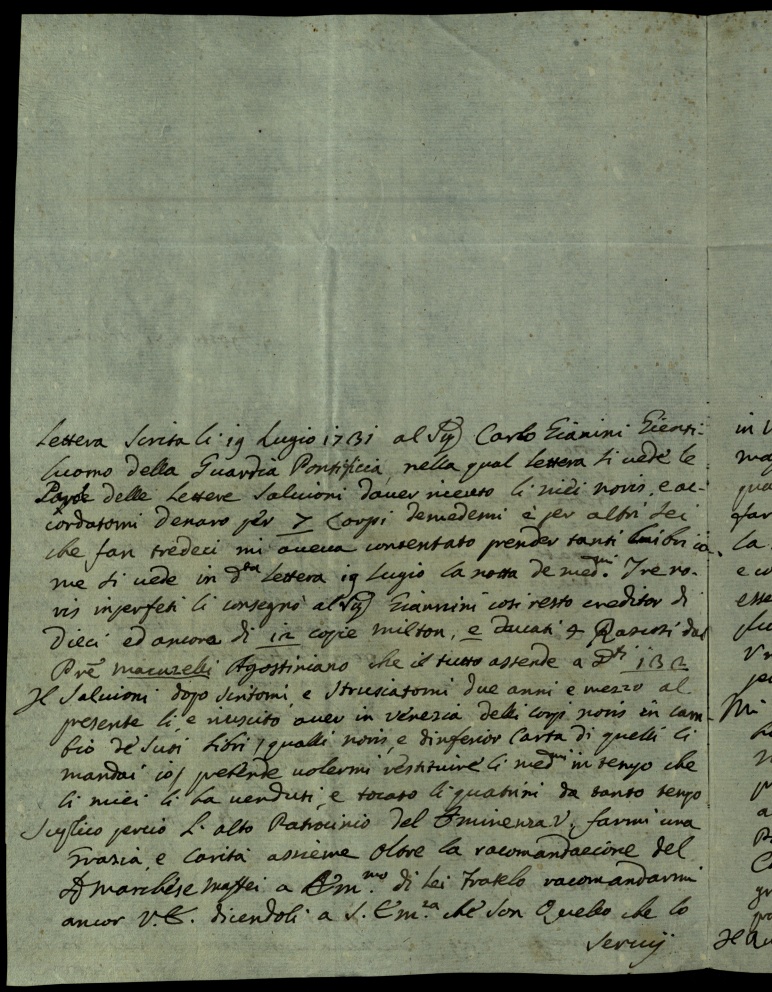 Lettera Scritta li 19 Luglio 1731 al Sig Carlo Gianini Gienti-
luomo della Guardia Pontificia, nella qual lettera si vede le
delle Lettere Salvioni d'aver riceuto li miei noris, e ac-
cordatomi denaro per 7 Corpi de medemi e per altri sei
che fan tredeci mi aveva contentato prender tanti libri co-
me si vede in dta lettera 19 Luglio la notta de medmi. Tre no-
ris inperfeti li consegnò al Sig Giannini così resto creditor di
Dieci ed ancora di 12 copie milton, e ducati 4 Rascosi dal
Pre macuzebi Agostiniano che il tutto assende a dti 132
Il Salvioni dopo scritomi, e strusciatomi due anni e mezzo al
presente li è riuscito aver in Venezia delli corpi noris in cam-
bio de suoi libri / qualli noris, e d'inferior Carta di quelli li
mandai io / pretende volermi restituire li medmi in tenpo che
li miei li ha venduti, e tocato li quatrini da tanto tenpo
Suplico perciò L'alto Patrocinio del Eminenza V. farmi una
Grazia, e Carità assieme Oltre la racomandacione del
Marchese Maffei a Emmo. di Lei Fratelo racomandarmi
ancor V.E. dicendoli a S. Emza. che son Quello che lo
servij
in V
mag
qua
la
e co
esse
per
Mi
Il Qu